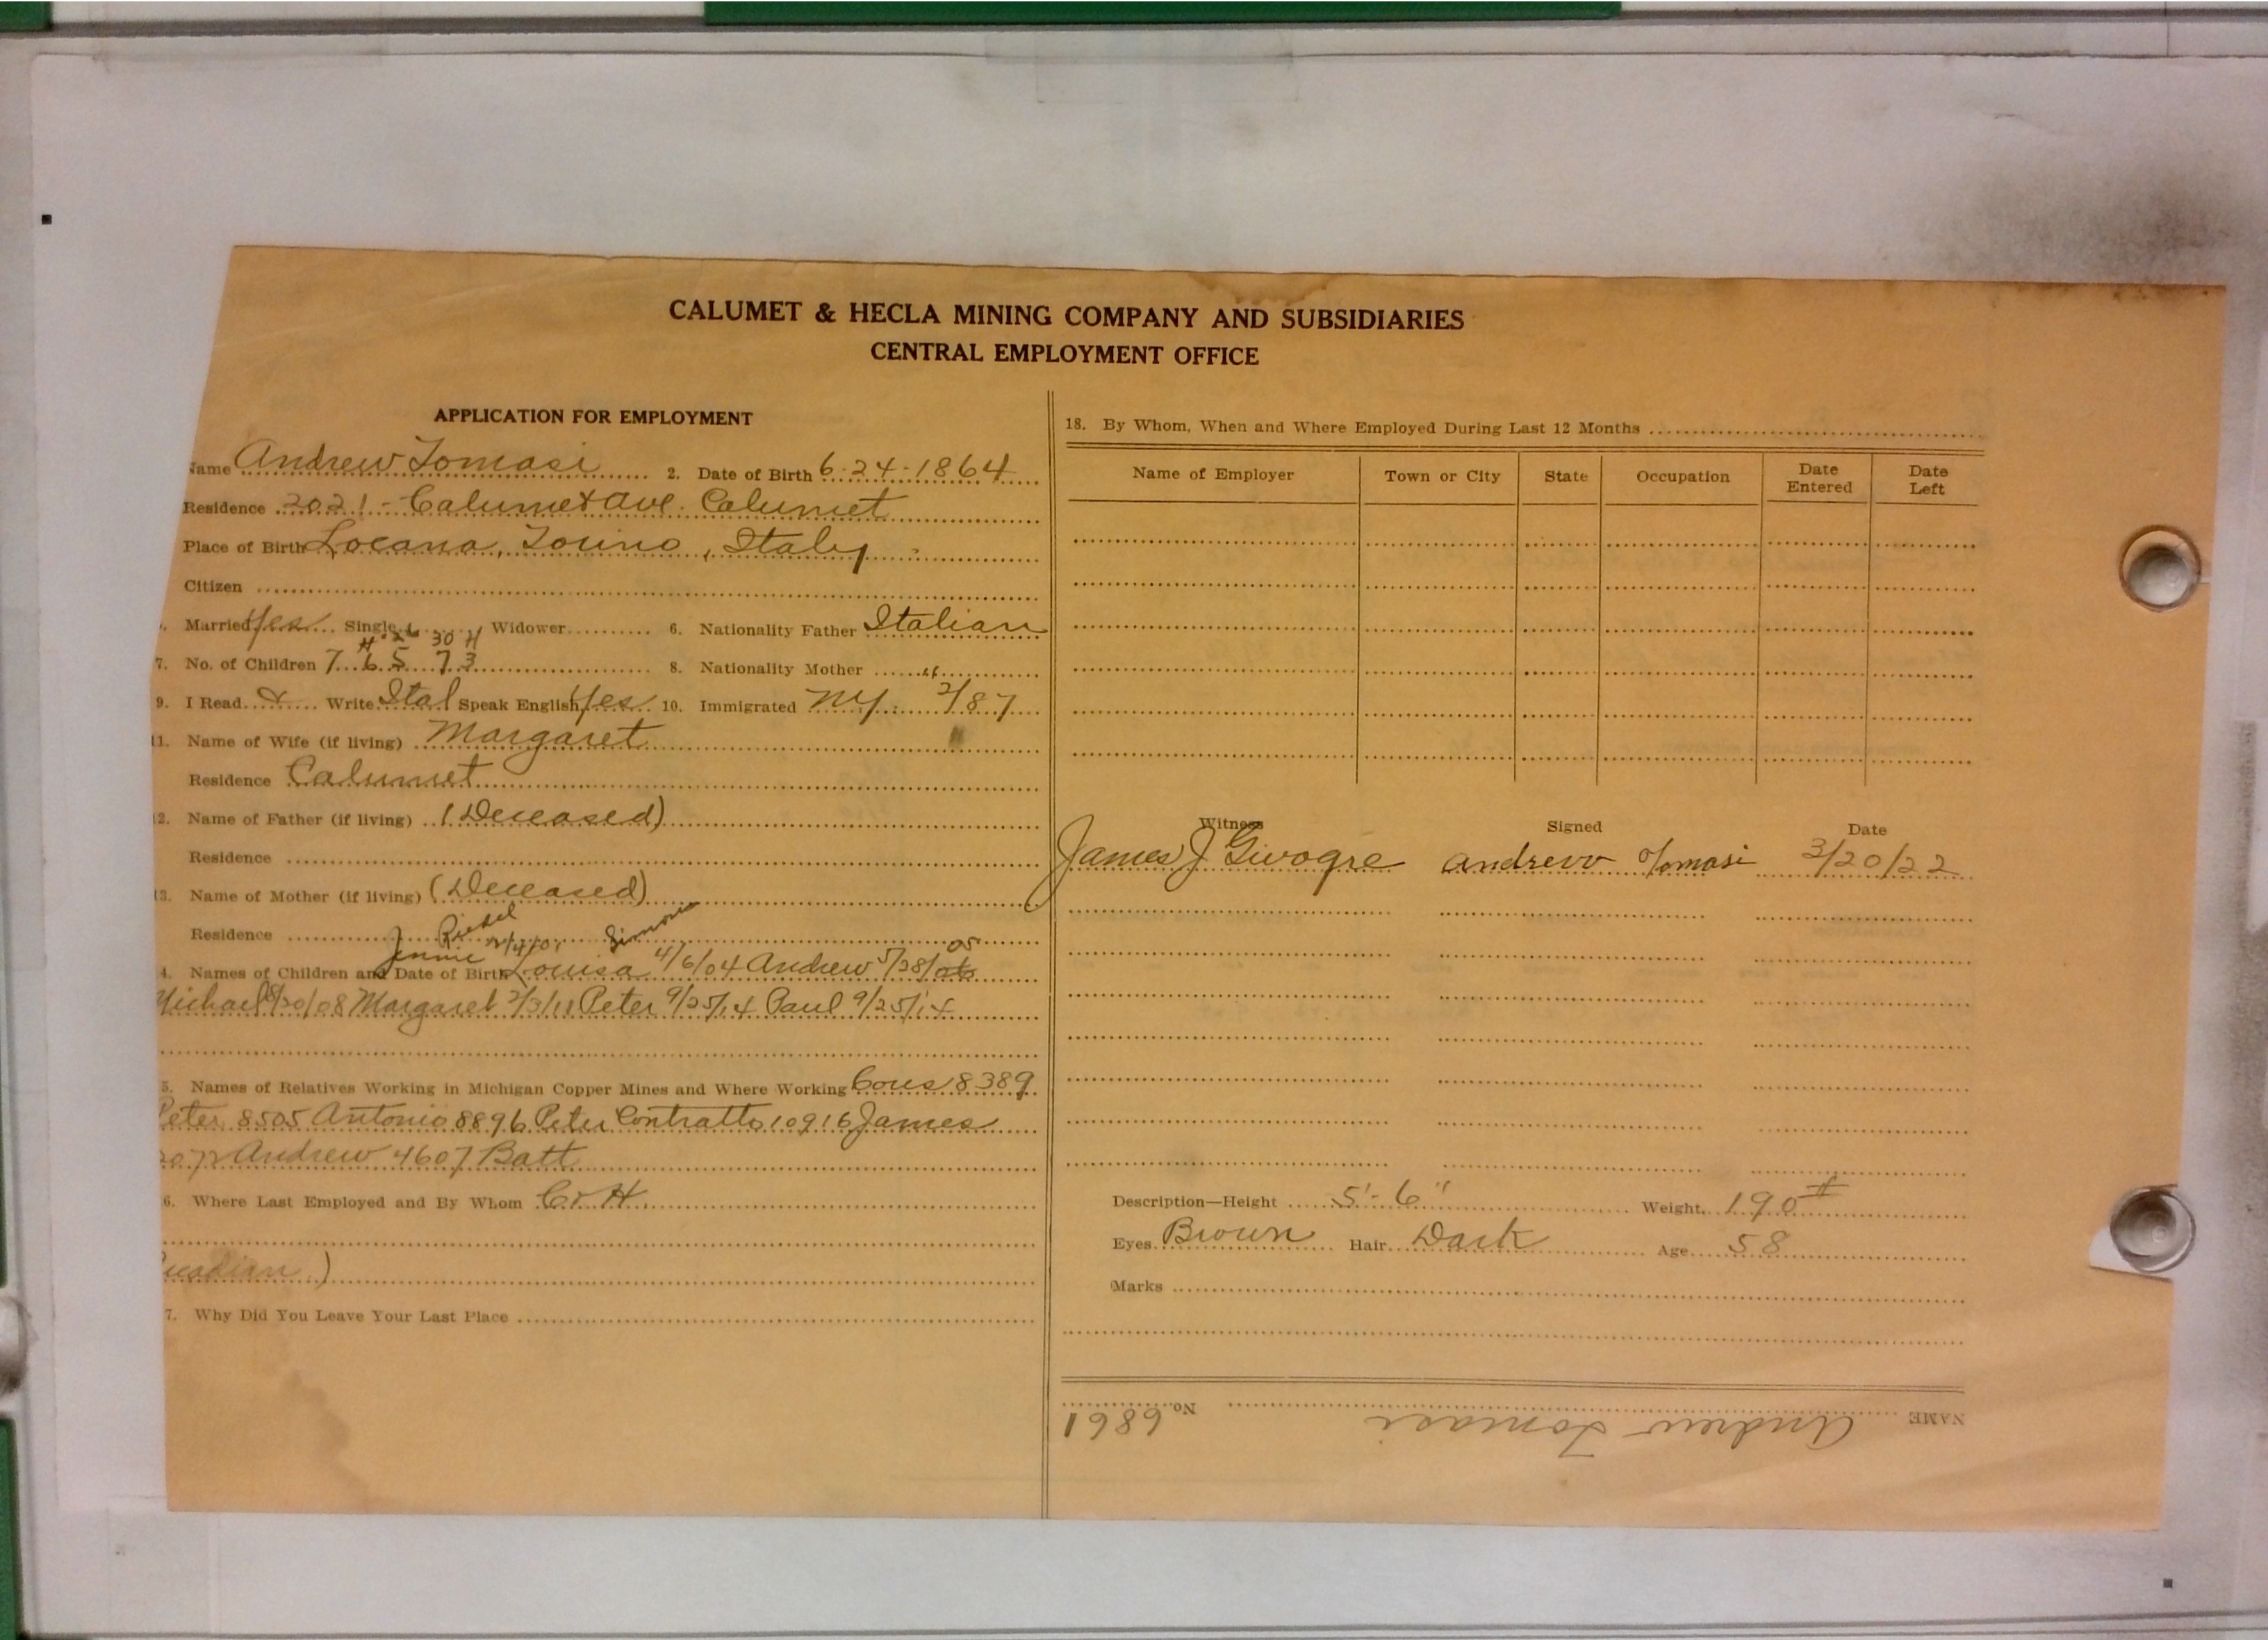 CALUMET & HECLA MINING COMPANY AND SUBSIDIARIES
CENTRAL EMPLOYMENT OFFICE
APPLICATION FOR EMPLOYMENT
Name Andrew Tomasi 2. Date of Birth 6-24-1864
Residence 2021 - Calumet Ave. Calumet
Place of Birth Locana, Torino, Italy
Citizen
Married Yes Single Widower 6. Nationality Father Italian
7. No. of Children 7 6 5 7 3 8. Nationality Mother "
9. I Read & Write Ital Speak English Yes 10. Immigrated NY. 2/87
11. Name of Wife (if living) Margaret
Residence Calumet
12. Name of Father (if living) (Deceased)
Residence
13. Name of Mother (if living) (Deceased)
Residence
Jennie Simone
4. Names of Children and Date of Birth Louisa 4/6/04 Andrew 5/28/05
Michael /20/08 Margaret 2/3/11 Peter 9/25/14 Paul 9/25/14
5. Names of Relatives Working in Michigan Copper Mines and Where Working Cous 8389
Peter 8505 Antonio 8896 Peter Contratto 10916 James
Andrew 4607 Batt
6. Where Last Employed and By Whom C & H.
)
7. Why Did You Leave Your Last Place
18. By Whom, When and Where Employed During Last 12 Months
Name of Employer Town or City State Occupation Date Entered Date Left
Witness Signed Date
James J Givogre Andrew Tomasi 3/20/22
Description—Height 5'-6" Weight 190#
Eyes Brown Hair Dark Age 58
Marks
NAME Andrew Tomasi No. 6861